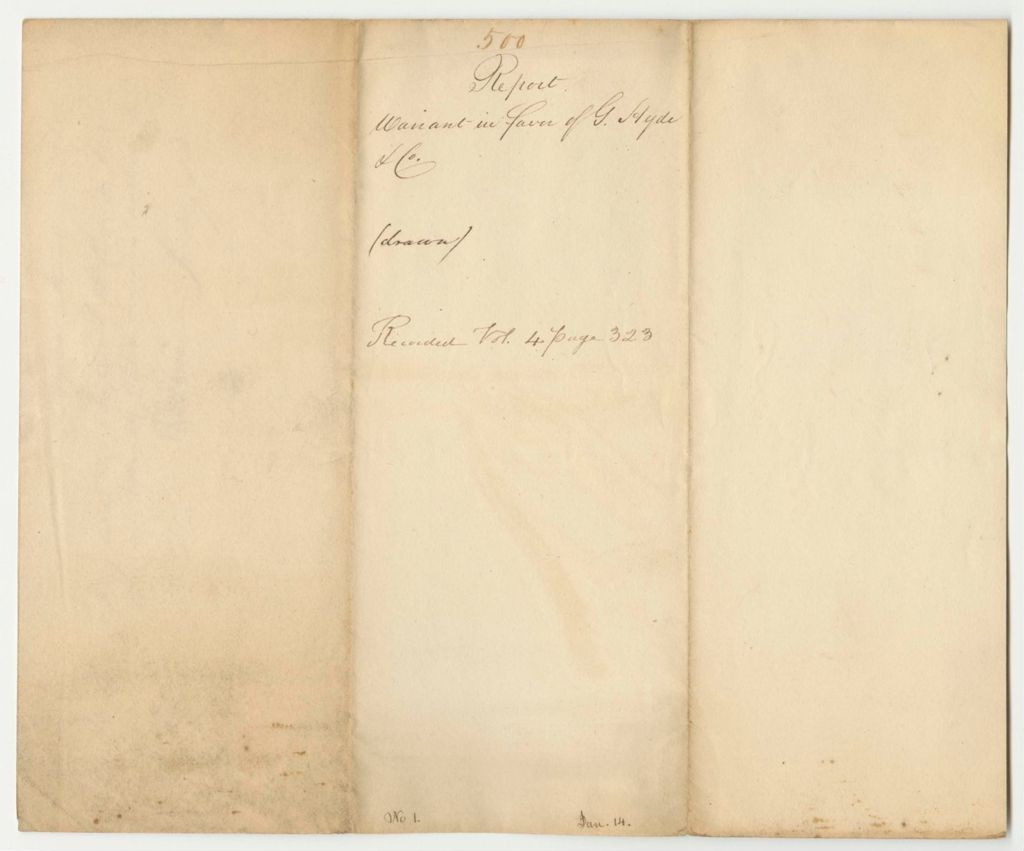 500
Report.
Warrant in favor of G. Hyde
& Co.
(drawn)
Recorded Vol. 4 page 323
No 1. Jan. 14.